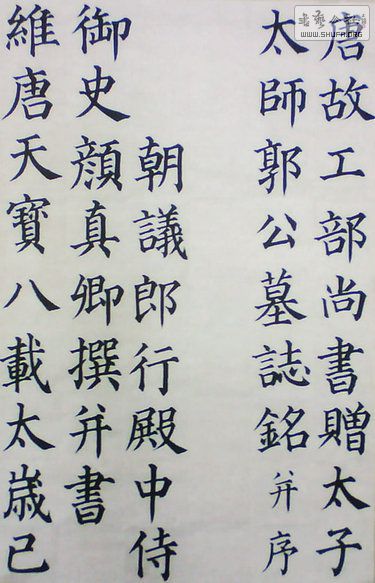 唐故工部尚書贈太子
太師郭公墓誌銘并序
朝議郎行殿中侍
御史顔真卿撰并書
維唐天寶八載太歲己
WWW.SHUFA.ORG